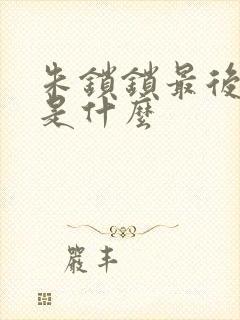 朱鎖鎖最後
是什麼
嚴丰